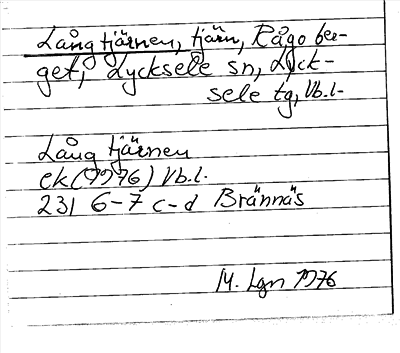 Långtjärnen, tjärn, Rågober-
get, Lycksele sn, Lyck-
sele tg, Vb.l.
Långtjärnen
ek (1976) Vb.l.
231 6-7 c-d Brännäs
M. Lgn 1976